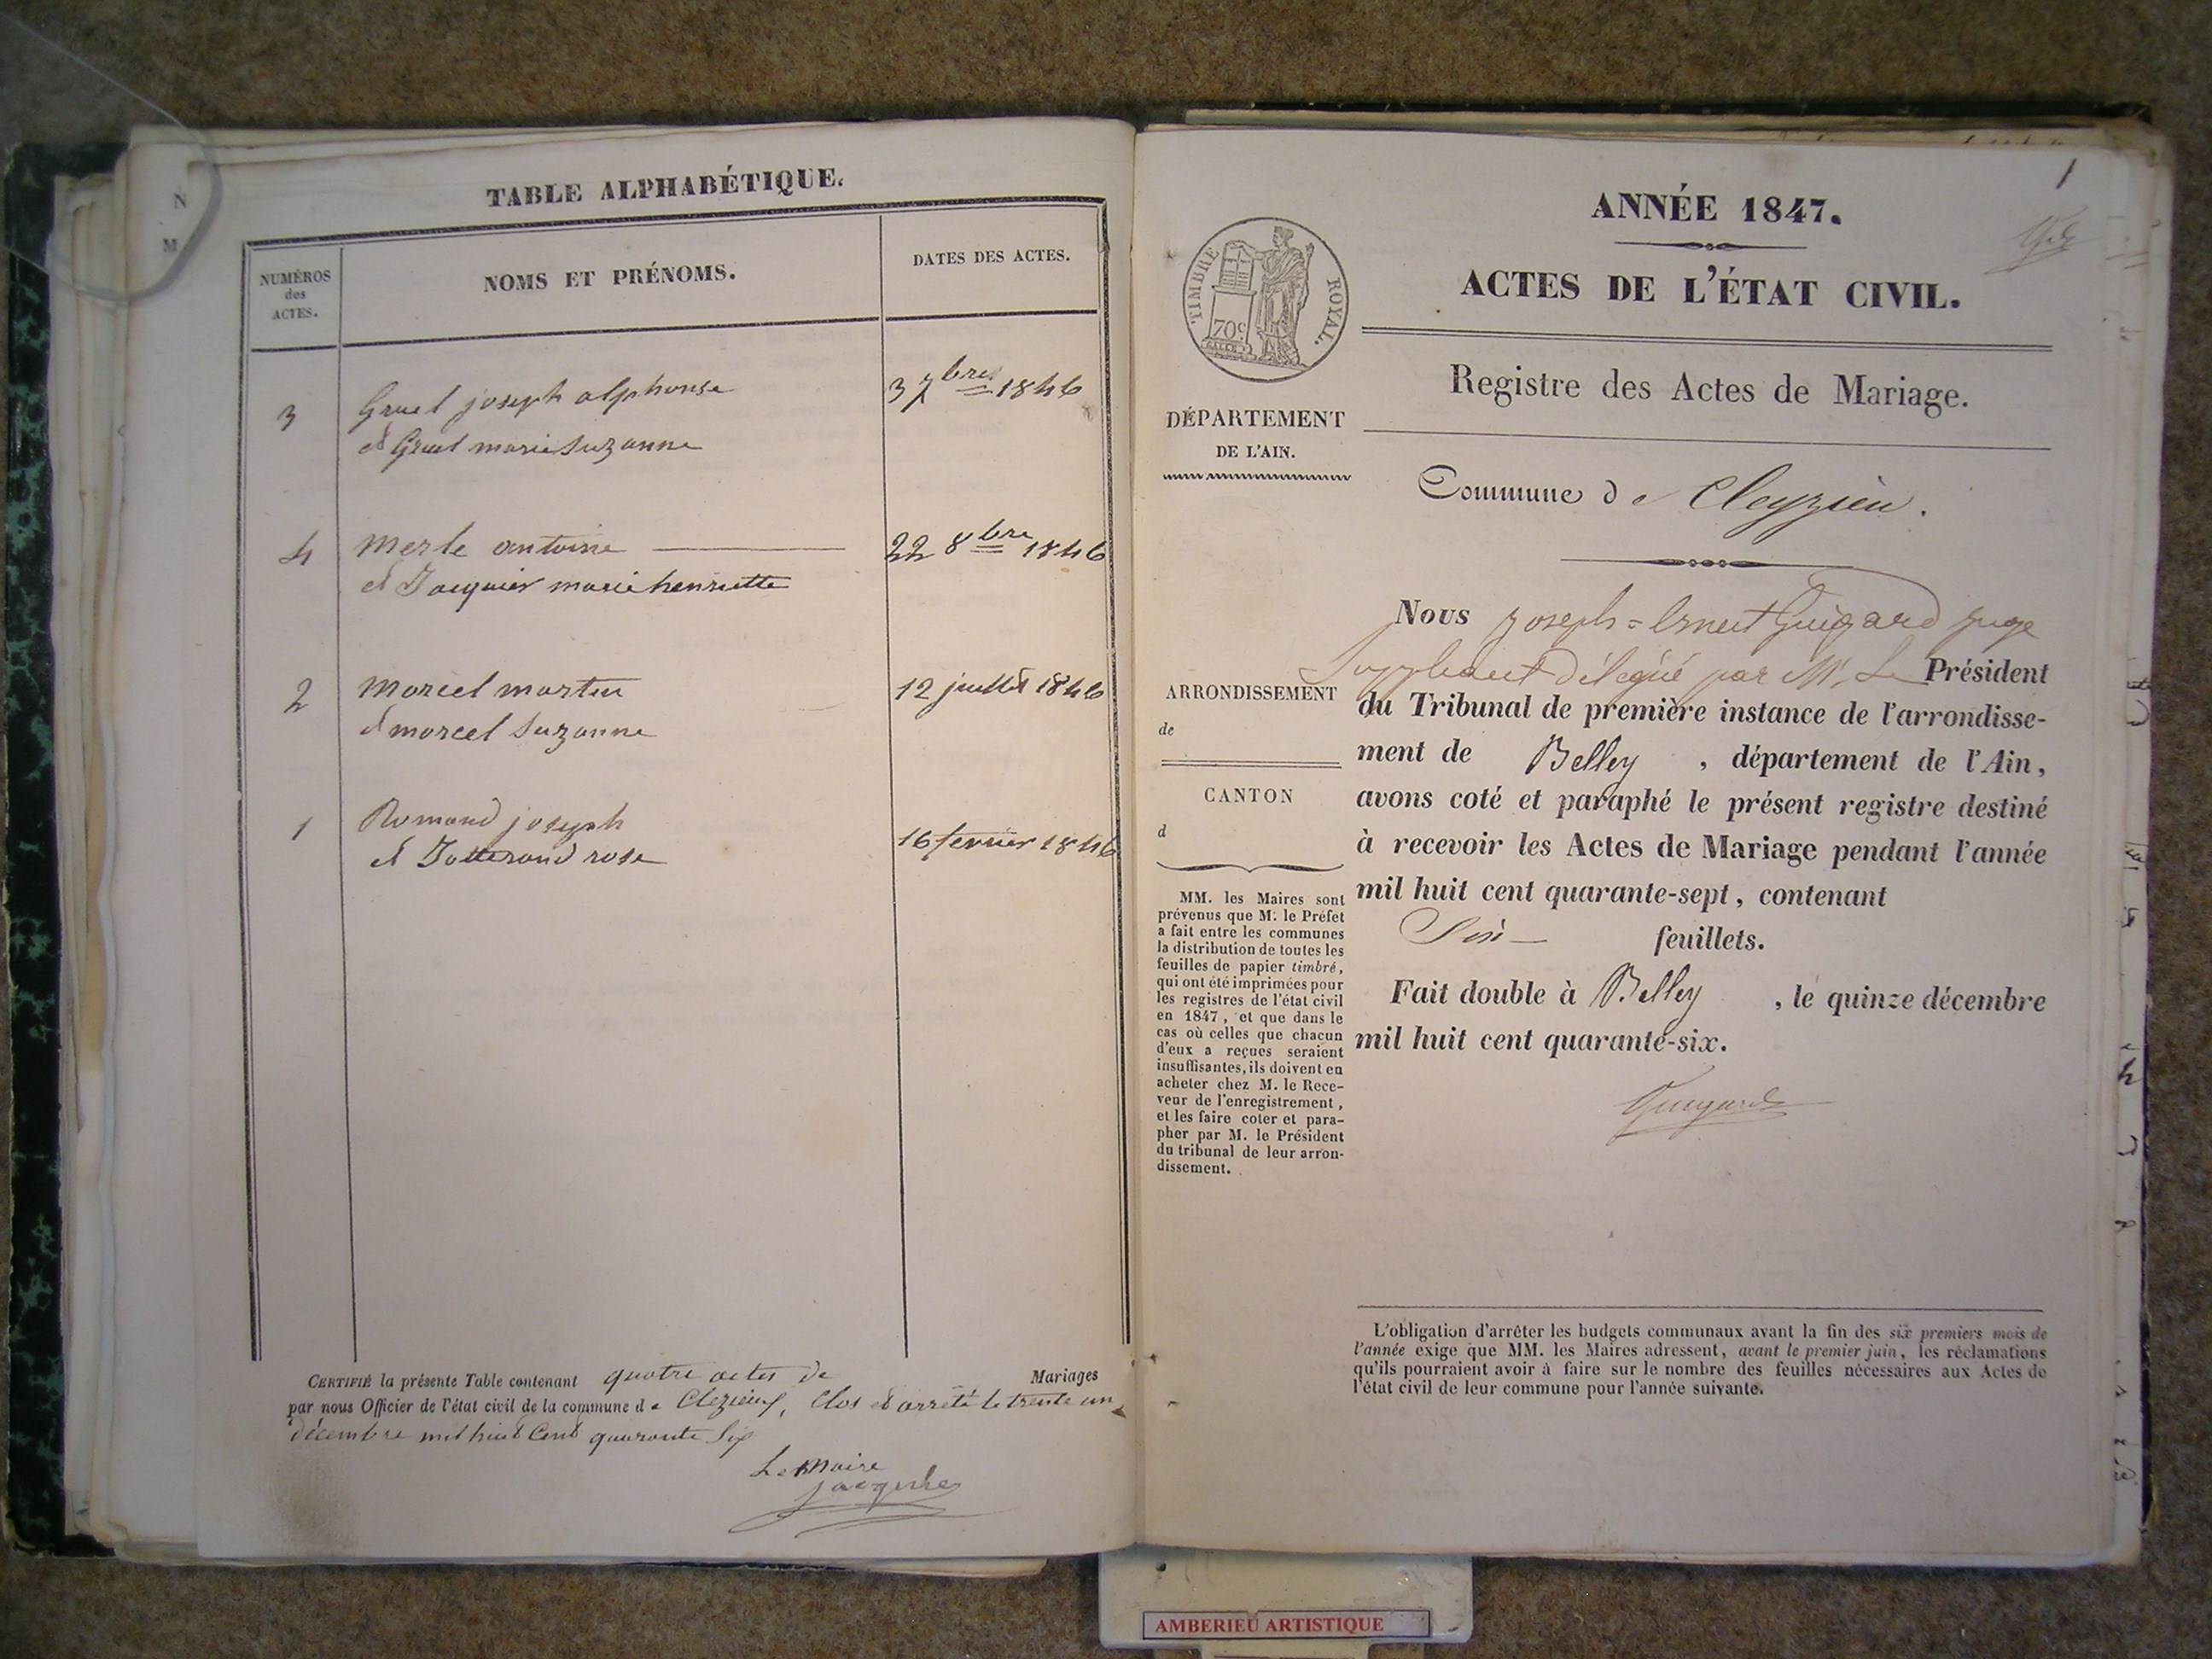 N
M
TABLE ALPHABÉTIQUE.
NUMÉROS
des
ACTES.
NOMS ET PRÉNOMS.
DATES DES ACTES.
3 Gruel joseph alphonse 3 7bre 1846
et Gruel marie Suzanne
4 Merle antoine 22 8bre 1846
et Jacquier marie henriette
2 Marcel martin 12 juillet 1846
et marcel Suzanne
1 Romand joseph 16 fevrier 1846
et Jotterand rose
CERTIFIÉ la présente Table contenant quatre actes de Mariages
par nous Officier de l'état civil de la commune de Clezieux, Clos et arrêté le trente un
décembre mil huit Cent quarante Six
Le Maire
1
ANNÉE 1847.
ACTES DE L'ÉTAT CIVIL.
TIMBRE ROYAL.
70c
Registre des Actes de Mariage.
DÉPARTEMENT
DE L'AIN.
Commune de Cleyzieu.
Nous joseph=Ernest Guigard juge
Suppléant Délégué par Mr. Le Président
du Tribunal de première instance de l'arrondisse-
ment de Belley, département de l'Ain,
avons coté et paraphé le présent registre destiné
à recevoir les Actes de Mariage pendant l'année
mil huit cent quarante-sept, contenant
Six feuillets.
Fait double à Belley, le quinze décembre
mil huit cent quarante-six.
Guigard
ARRONDISSEMENT
de
CANTON
d
MM. les Maires sont
prévenus que M. le Préfet
a fait entre les communes
la distribution de toutes les
feuilles de papier timbré,
qui ont été imprimées pour
les registres de l'état civil
en 1847, et que dans le
cas où celles que chacun
d'eux a reçues seraient
insuffisantes, ils doivent en
acheter chez M. le Rece-
veur de l'enregistrement,
et les faire coter et para-
pher par M. le Président
du tribunal de leur arron-
dissement.
L'obligation d'arrêter les budgets communaux avant la fin des six premiers mois de
l'année exige que MM. les Maires adressent, avant le premier juin, les réclamations
qu'ils pourraient avoir à faire sur le nombre des feuilles nécessaires aux Actes de
l'état civil de leur commune pour l'année suivante.
AMBERIEU ARTISTIQUE